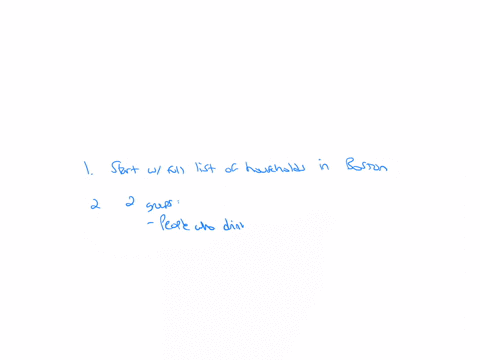 1. Start w/ full list of households in Boston
2 2 groups:
- People who drin